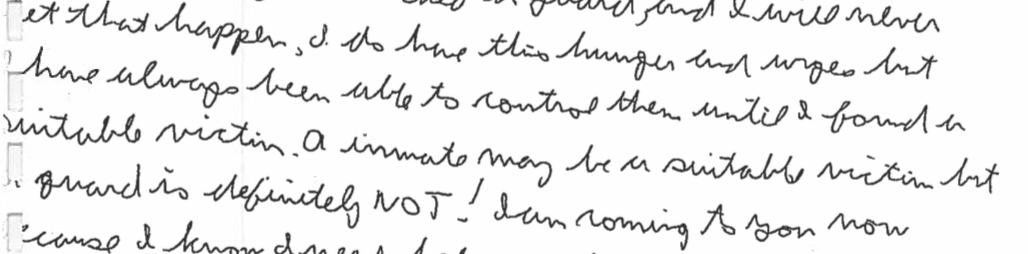 guard, and I will never
et that happen, I do have this hunger and urges but
have always been able to control them until I found a
uitable victim. A inmate may be a suitable victim but
guard is definitely NOT! I am coming to you now
cause I know I need